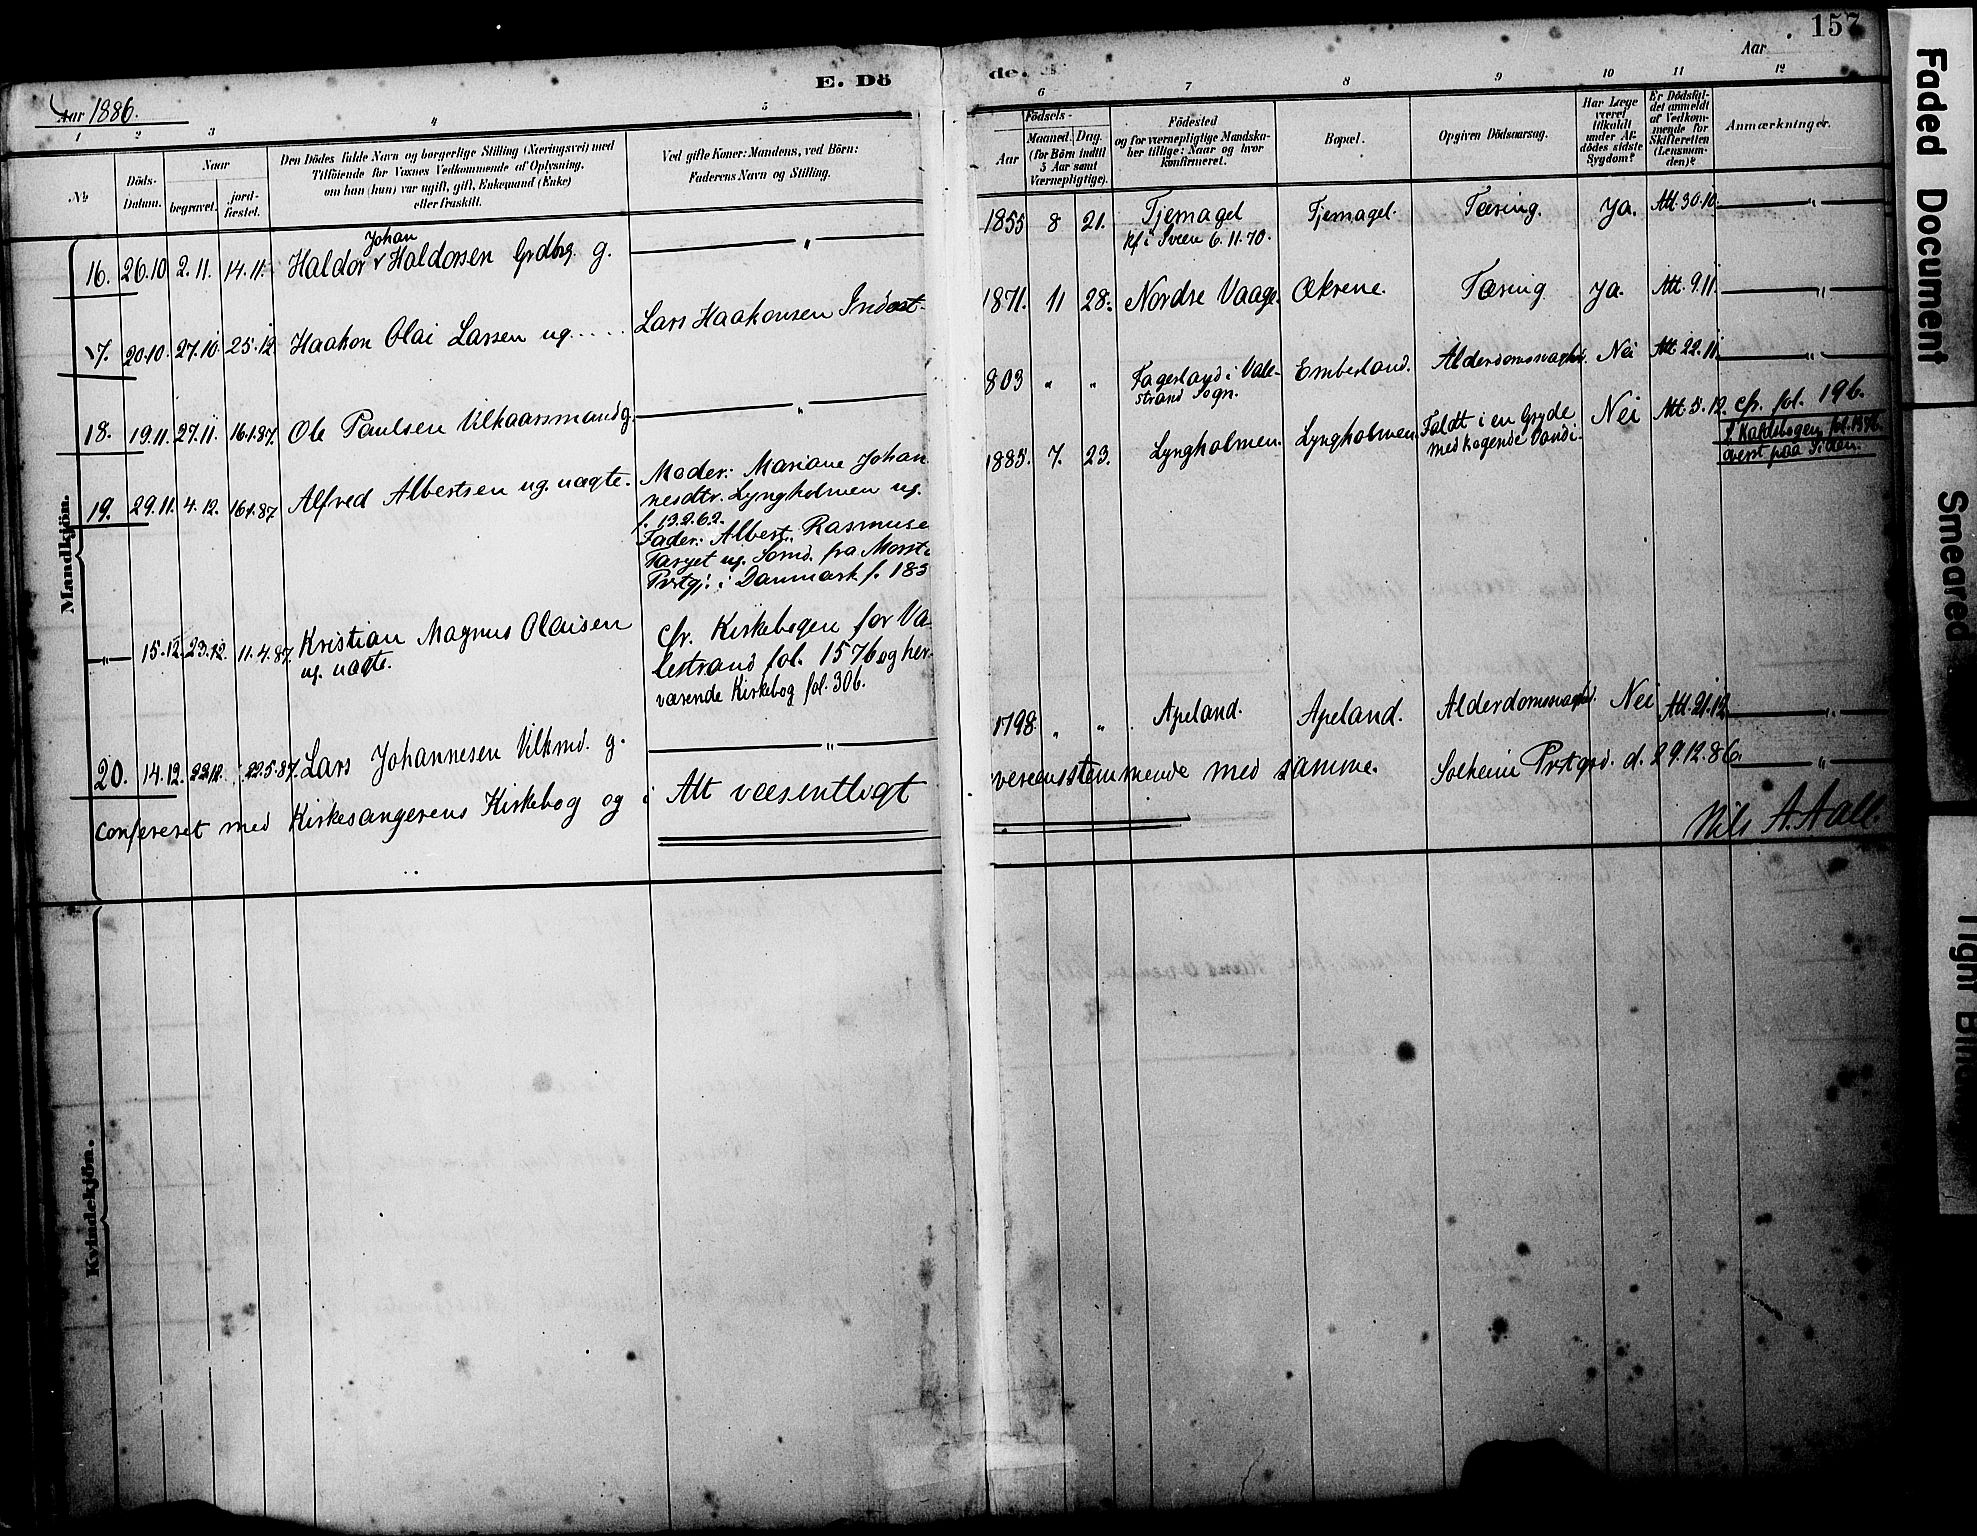 157
Aar
E. Dö
de.
Aar 1886.
1 2 3 4 5 6 7 8 9 10 11 12
No
Döds-Datum.
Naar
begravet.
jord-fæstet.
Den Dödes fulde Navn og borgerlige Stilling (Næringsvei) med
Tilföiende for Voxnes Vedkommende af Oplysning,
om han (hun) var ugift, gift, Enkemand (Enke)
eller fraskilt.
Ved gifte Koner: Mandens, ved Börn:
Faderens Navn og Stilling.
Födsels-
Aar
Maaned. Dag.
(for Börn indtil
5 Aar samt
Værnepligtige).
Födested
og for værnepligtige Mandska-
ber tillige: Naar og hvor
konfirmeret.
Bopæl.
Opgiven Dödsaarsag.
Har Læge
været
tilkaldt
under Af-
dödes sidste
Sygdom?
Er Dödsfal-
det anmeldt
af Vedkom-
mende for
Skifteretten
(Lensman-
den)?
Anmærkninger.
Mandkjön.
16. 26.10 2.11. 14.11. Haldor Johan Haldorsen Grdbrg. g. — " — 1855 8 21. Tjernagel
kf. i Sveen 6.11.70. Tjernagel. Tæring. Ja. Att. 30.10. — " —
17. 20.10. 27.10. 25.12. Haakon Olai Larsen ug. Lars Haakonsen Inderst. 1871. 11 28. Nordre Vaage. Økrene. Tæring Ja. Att. 9.11. — " —
18. 19.11. 27.11. 16.1.87. Ole Paulsen Vilkaarsmand g. — " — 803 " " Fagerland i Vale-
strand Sogn. Emberland. Alderdomssvaghed. Nei Att. 22.11. — " —
19. 29.11. 4.12. 16.1.87 Alfred Albertsen ug. uægte. Moder: Mariane Johan
nesdtr. Lyngholmen ug.
f. 13.2.62.
Fader: Albert Rasmuse
ug. fra
Prstgj. i Danmark f. 185
1885. 7. 23. Lyngholmen. Lyngholmen. Faldt i en Gryde
med kogende Vand. Nei Att. 5.12. cfr. fol. 196.
fol. 1576
øverst paa Siden.
— " — 15.12. 23.12. 11.4.87. Kristian Magnus Olaisen
ug. uægte. cfr. Kirkebogen for Va-
lestrand fol. 1576 og her-
værende Kirkebog fol. 306.
20. 14.12. 22.12. 22.5.87. Lars Johannesen Vilkmd. g. — " — 1798. " " Apeland. Apeland. Alderdomssvaghed. Nei Att. 21.12. — " —
Confereret med Kirkesangerens Kirkebog og i Alt væsentligt
vereensstemmende med samme. Solheim Prstgrd. d. 29.12.86. "
Nils A. Aall.
Kvindekjön.
Faded Document
Smeared
Tight Bind